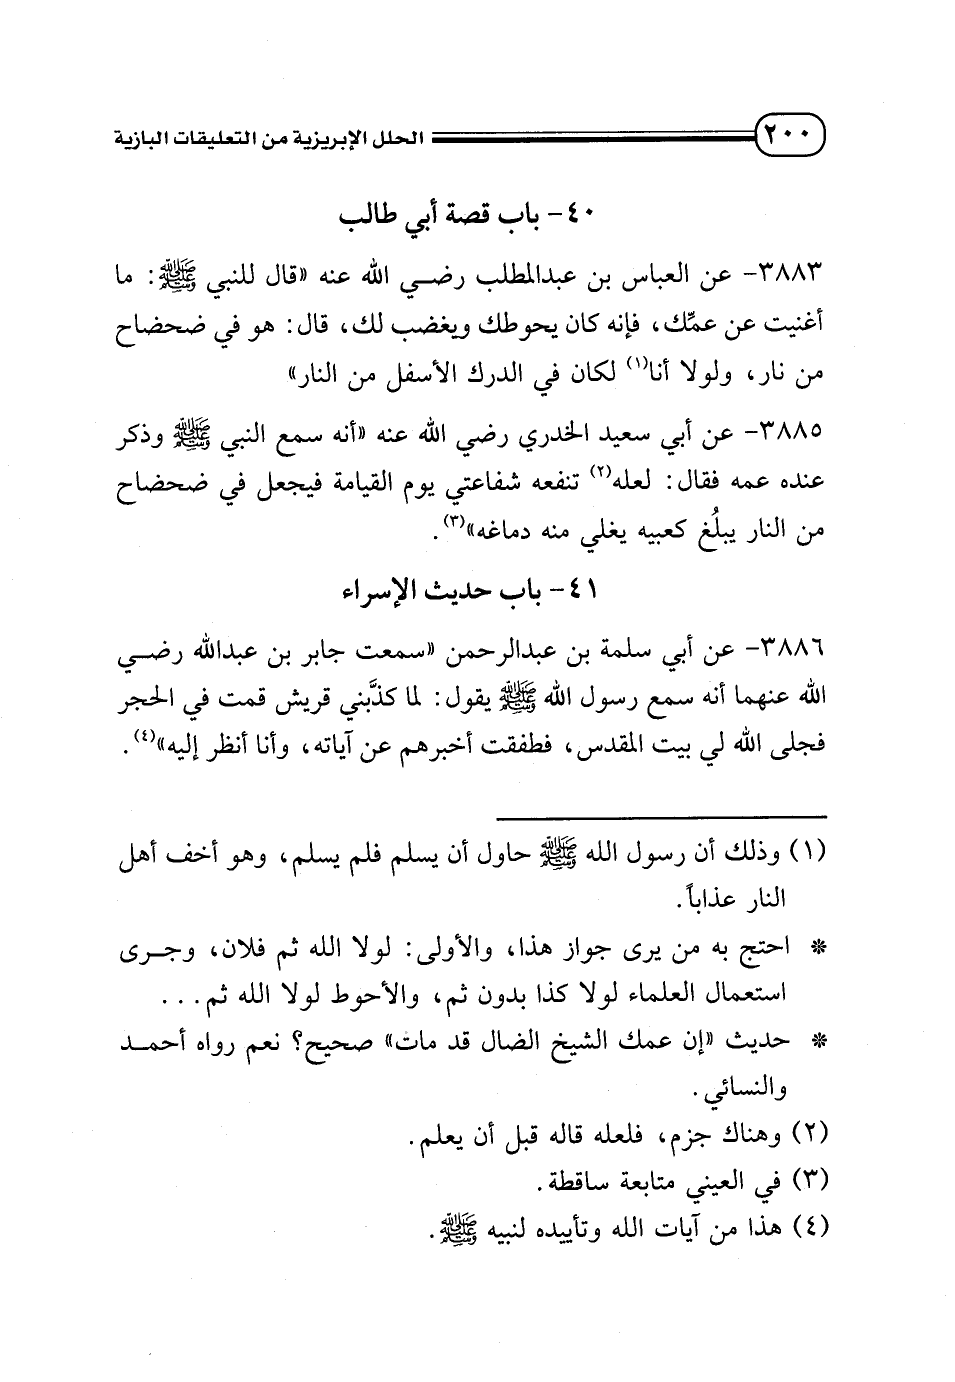 ٢٠٠ الحلل الإبريزية من التعليقات البازية
٤٠- باب قصة أبي طالب
٣٨٨٣- عن العباس بن عبدالمطلب رضي الله عنه «قال للنبي ﷺ: ما
أغنيت عن عمِّك، فإنه كان يحوطك ويغضب لك، قال: هو في ضحضاح
من نار، ولولا أنا(١) لكان في الدرك الأسفل من النار»
٣٨٨٥- عن أبي سعيد الخدري رضي الله عنه «أنه سمع النبي ﷺ وذكر
عنده عمه فقال: لعله(٢) تنفعه شفاعتي يوم القيامة فيجعل في ضحضاح
من النار يبلُغ كعبيه يغلي منه دماغه»(٣).
٤١- باب حديث الإسراء
٣٨٨٦- عن أبي سلمة بن عبدالرحمن «سمعت جابر بن عبدالله رضي
الله عنهما أنه سمع رسول الله ﷺ يقول: لما كذَّبني قريش قمت في الحجر
فجلى الله لي بيت المقدس، فطفقت أخبرهم عن آياته، وأنا أنظر إليه»(٤).
(١) وذلك أن رسول الله ﷺ حاول أن يسلم فلم يسلم، وهو أخف أهل
النار عذاباً.
* احتج به من يرى جواز هذا، والأولى: لولا الله ثم فلان، وجرى
استعمال العلماء لولا كذا بدون ثم، والأحوط لولا الله ثم...
* حديث «إن عمك الشيخ الضال قد مات» صحيح؟ نعم رواه أحمد
والنسائي.
(٢) وهناك جزم، فلعله قاله قبل أن يعلم.
(٣) في العيني متابعة ساقطة.
(٤) هذا من آيات الله وتأييده لنبيه ﷺ.